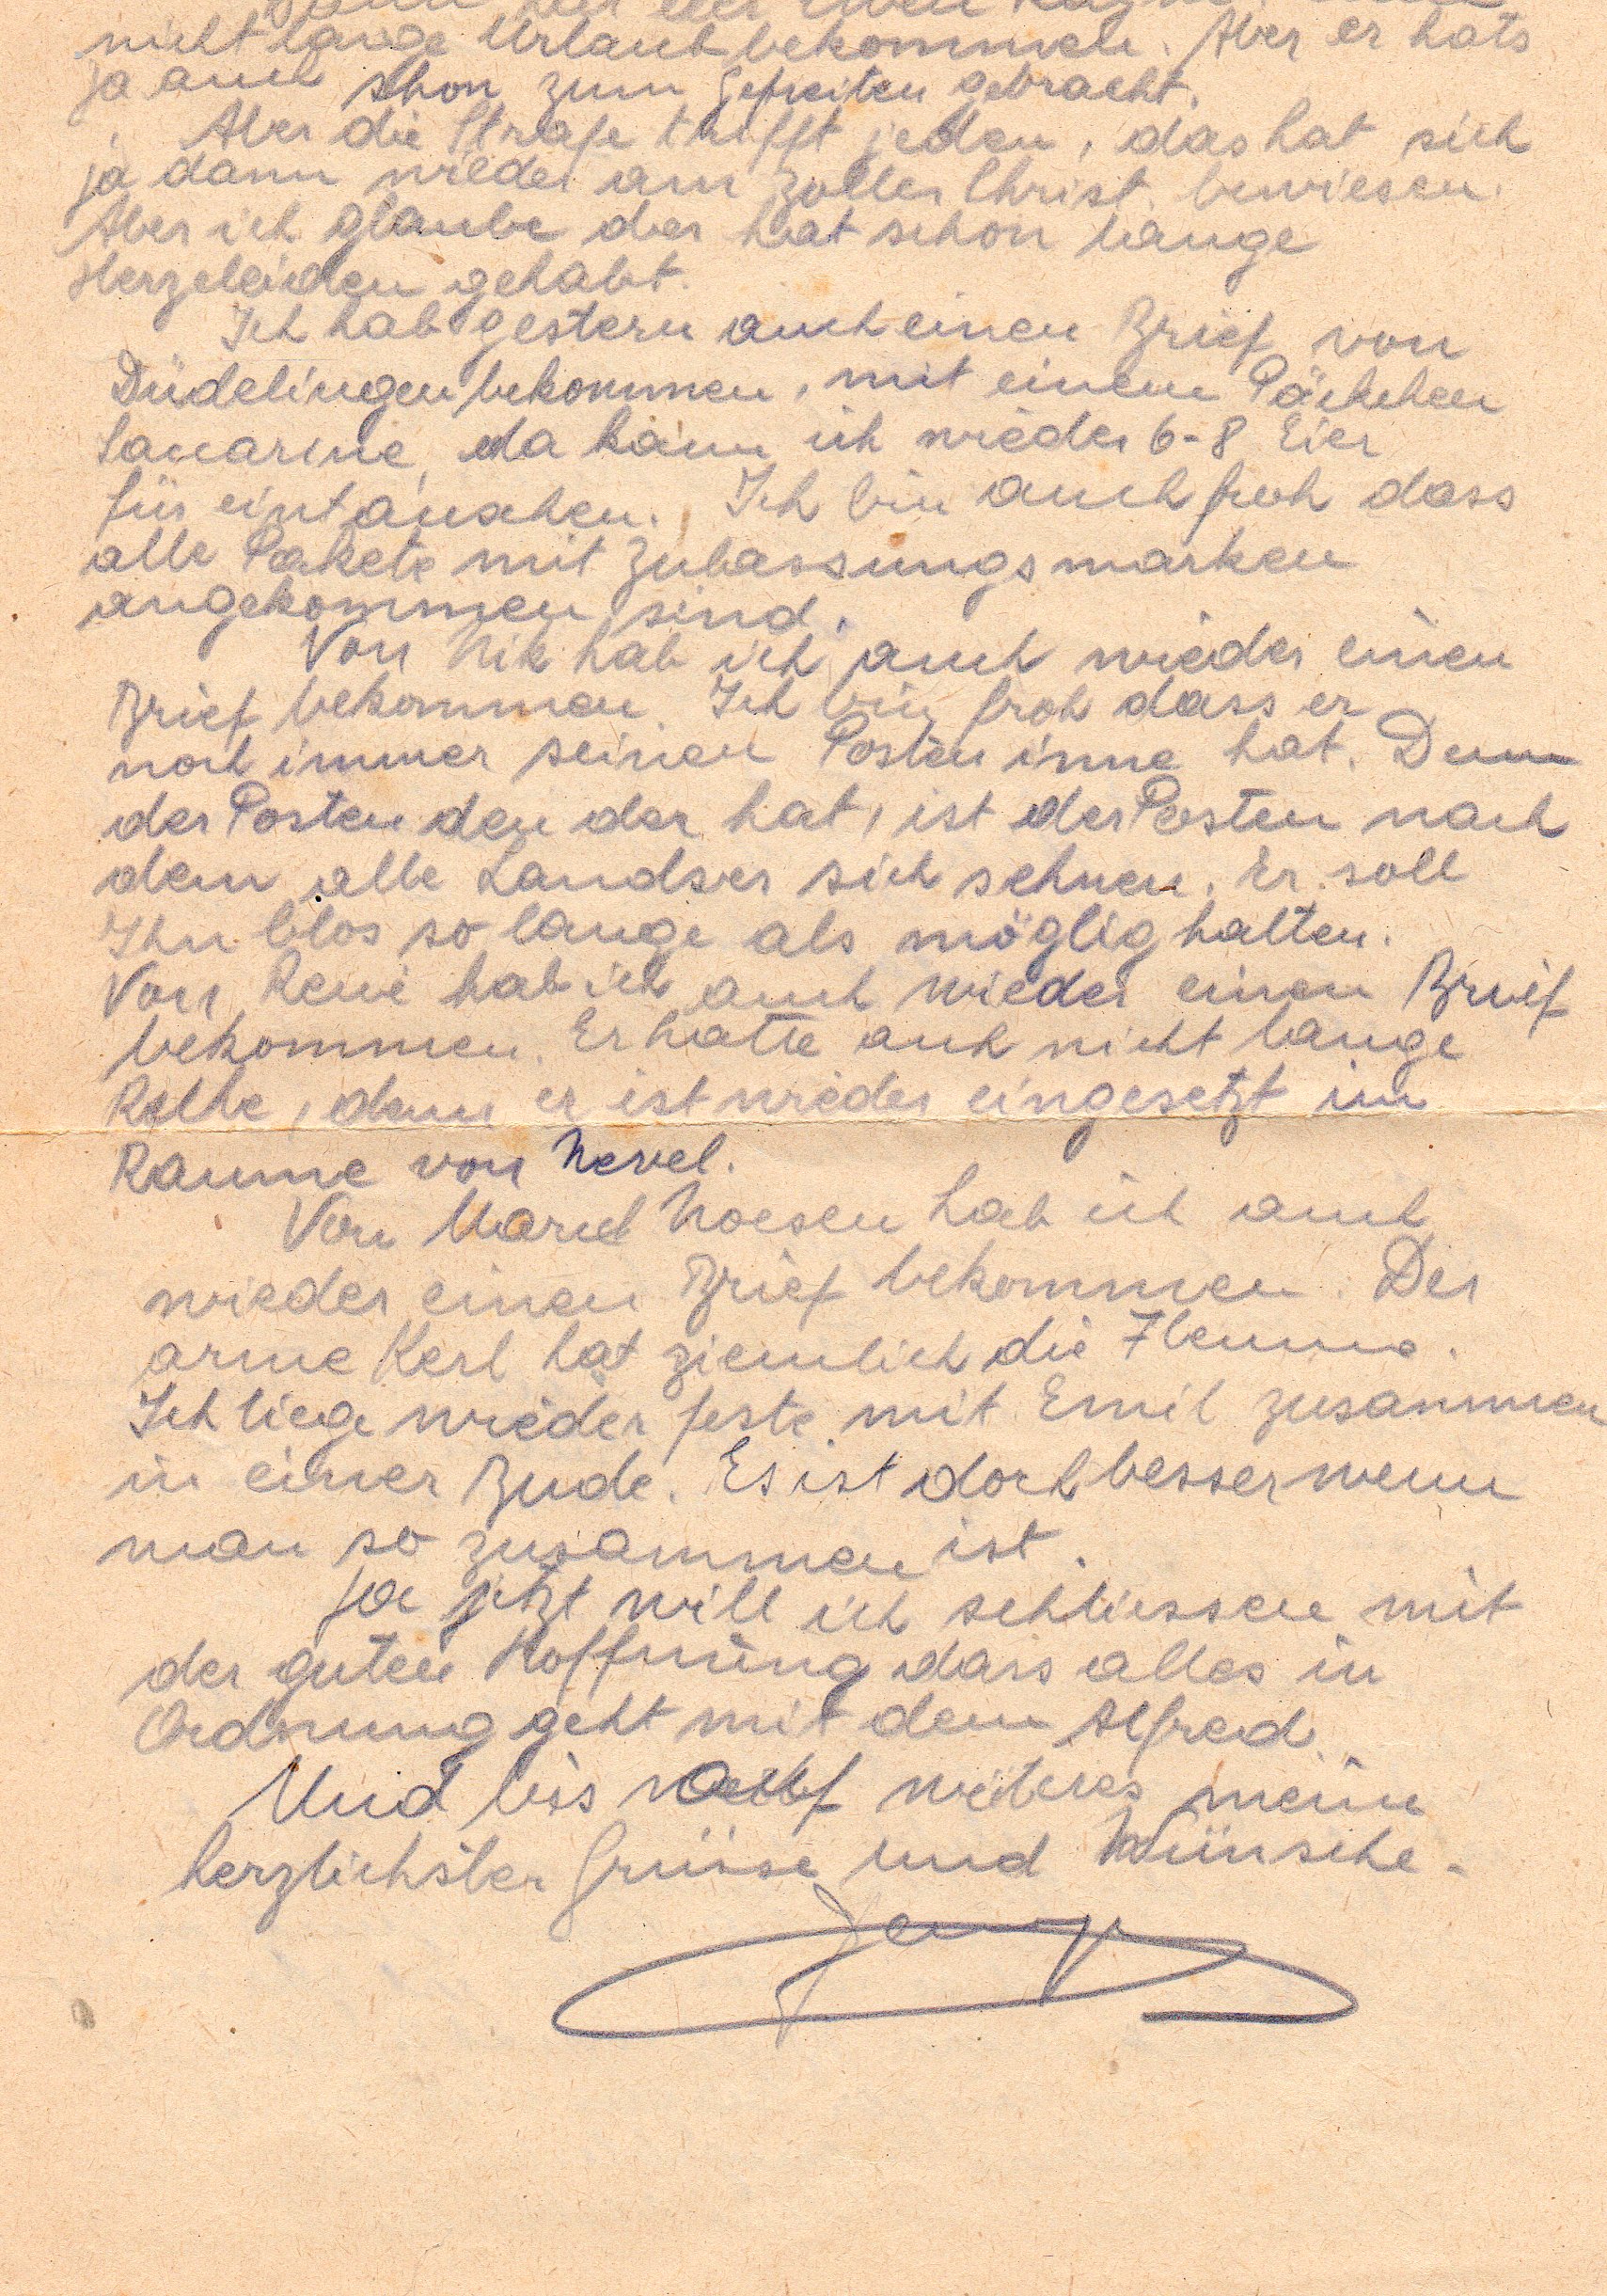 nicht lange Urlaub bekommen. Aber er hats
ja auch schon zum Gefreiten gebracht.
Aber die Strafe trifft jeden, das hat sich
ja dann wieder am Zoller Christ. bewiesen.
Aber ich glaube der hat schon lange
Herzeleiden gehabt.
Ich hab gestern auch einen Brief von
Düdelingen bekommen, mit einem Päckchen
Saccarine, da kann ich wieder 6-8 Eier
für eintauschen. Ich bin auch froh dass
alle Pakete mit Zulassungsmarken
angekommen sind.
Von Nik hab ich auch wieder einen
Brief bekommen. Ich bin froh dass er
noch immer seinen Posten inne hat. Denn
der Posten den der hat, ist der Posten nach
dem alle Landser sich sehnen. Er soll
Ihn blos so lange als möglig halten.
Von René hab ich auch wieder einen Brief
bekommen. Er hatte auch nicht lange
Ruhe, denn er ist wieder eingesetzt im
Raume von Nevel.
Von Marcel Noesen hab ich auch
wieder einen Brief bekommen. Der
arme Kerl hat ziemlich die Flemme.
Ich liege wieder feste mit Emil zusammen
in einer Bude. Es ist doch besser wenn
man so zusammen ist.
Ja jetzt will ich schliessen mit
der guten Hoffnung dass alles in
Ordnung geht mit dem Alfred
Und bis auf weiteres meine
herzlichsten Grüsse und Wünsche.
Jemp